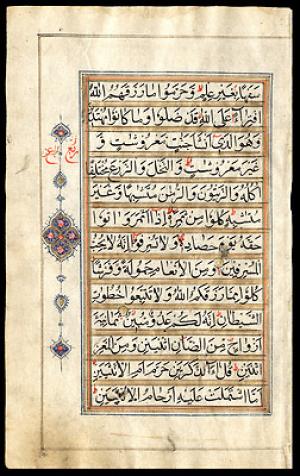 سَفَهًا بِغَيْرِ عِلْمٍ وَحَرَّمُوا مَا رَزَقَهُمُ اللَّهُ
افْتِرَاءً عَلَى اللَّهِ قَدْ ضَلُّوا وَمَا كَانُوا مُهْتَدِينَ
وَهُوَ الَّذِي أَنْشَأَ جَنَّتٍ مَعْرُوشَتٍ وَ
غَيْرَ مَعْرُوشَتٍ وَالنَّخْلَ وَالزَّرْعَ مُخْتَلِفًا
أُكُلُهُ وَالزَّيْتُونَ وَالرُّمَّانَ مُتَشَبِهًا وَغَيْرَ
مُتَشَبِهٍ كُلُوا مِنْ ثَمَرِهِ إِذَا أَثْمَرَ وَآتُوا
حَقَّهُ يَوْمَ حَصَادِهِ وَلَا تُسْرِفُوا إِنَّهُ لَا يُحِبُّ
الْمُسْرِفِينَ وَمِنَ الْأَنْعَامِ حَمُولَةً وَفَرْشًا
كُلُوا مِمَّا رَزَقَكُمُ اللَّهُ وَلَا تَتَّبِعُوا خُطُوَاتِ
الشَّيْطَانِ إِنَّهُ لَكُمْ عَدُوٌّ مُبِينٌ ثَمَانِيَةَ
أَزْوَاجٍ مِنَ الضَّأْنِ اثْنَيْنِ وَمِنَ الْمَعْزِ
اثْنَيْنِ قُلْ آلذَّكَرَيْنِ حَرَّمَ أَمِ الْأُنْثَيَيْنِ
أَمَّا اشْتَمَلَتْ عَلَيْهِ أَرْحَامُ الْأُنْثَيَيْنِ
ربع